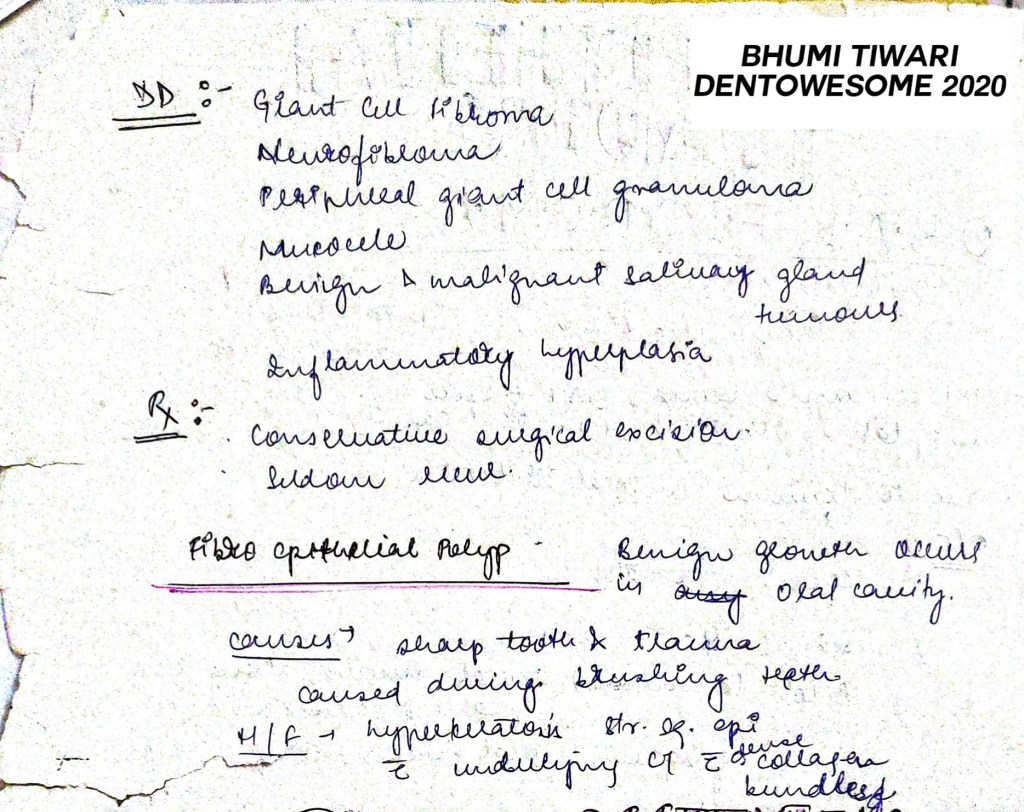 BHUMI TIWARI
DENTOWESOME 2020
DD :-
Giant Cell Fibroma
Neurofibroma
Peripheral giant cell granuloma
Mucocele
Benign & malignant salivary gland
tumours
Inflammatory hyperplasia
Rx :-
Conservative surgical excision.
Seldom recur.
Fibro epithelial Polyp - Benign growth occurs
in any oral cavity.
Causes → sharp tooth & trauma
caused during brushing teeth
H/F → hyperkeratosis str. sq. epi
c̄ underlying CT c̄ dense collagen
bundles